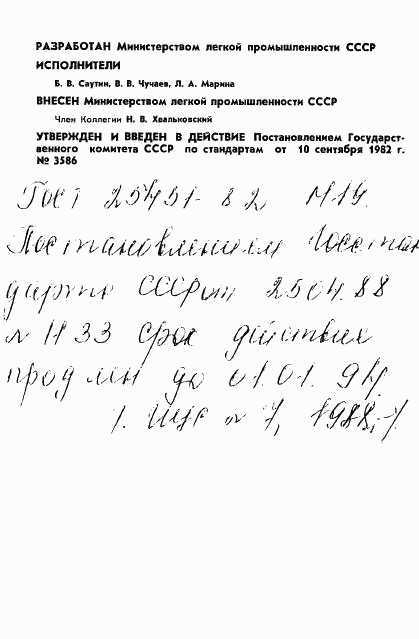 РАЗРАБОТАН Министерством легкой промышленности СССР
ИСПОЛНИТЕЛИ
Б. В. Саутин, В. В. Чучаев, Л. А. Марина
ВНЕСЕН Министерством легкой промышленности СССР
Член Коллегии Н. В. Хвальковский
УТВЕРЖДЕН И ВВЕДЕН В ДЕЙСТВИЕ Постановлением Государст-
венного комитета СССР по стандартам от 10 сентября 1982 г.
№ 3586
Гост 25451-82
Постановлением Госстан
дарта СССР от 25.04.88
№ 1133 срок действия
продлен до 01.01.94
ИУС № 7, 1988